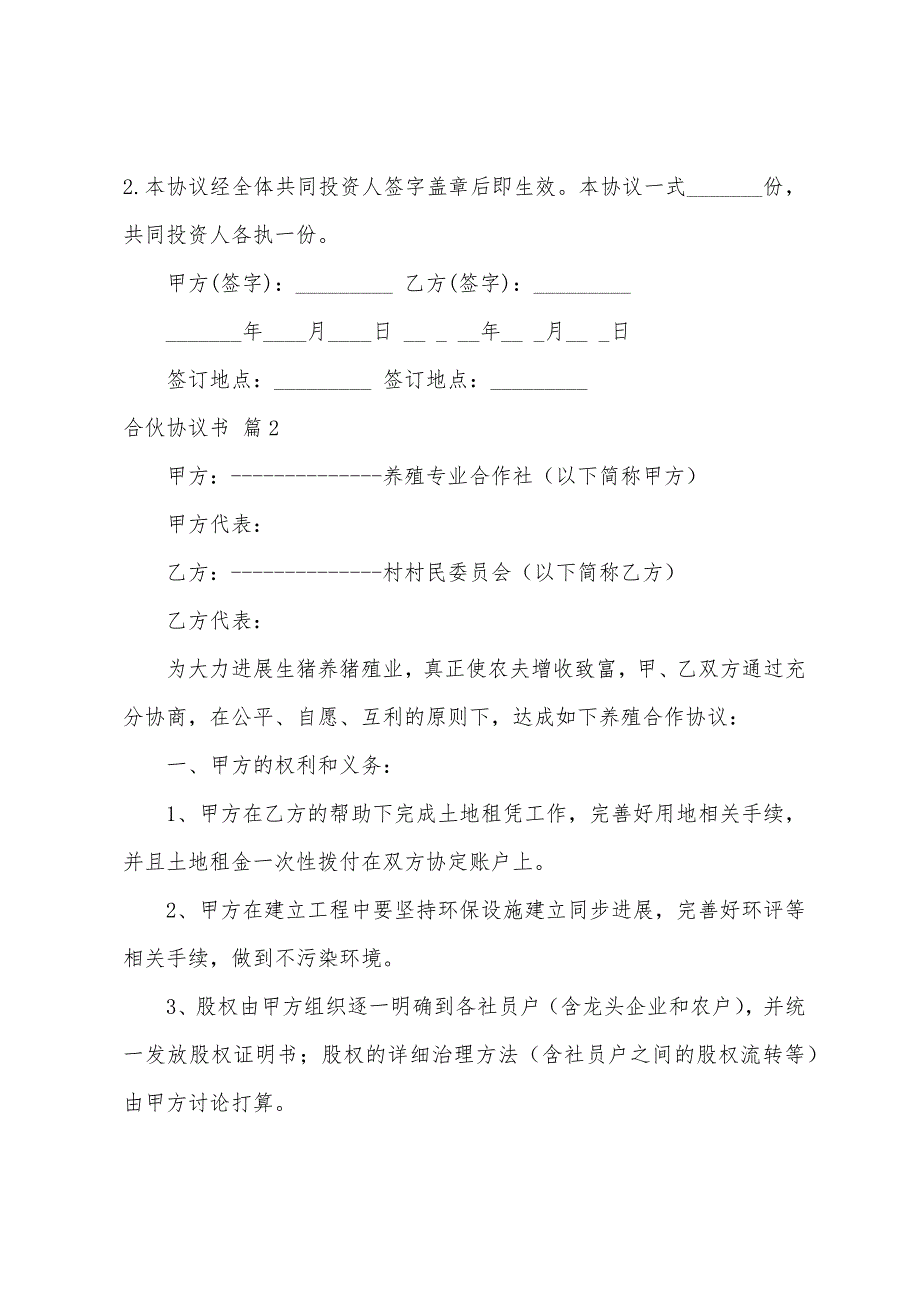 2.本协议经全体共同投资人签字盖章后即生效。本协议一式_______份，
共同投资人各执一份。
甲方(签字)：_________ 乙方(签字)：_________
_______年____月____日 __ _ __年__ _月__ _日
签订地点：_________ 签订地点：_________
合伙协议书 篇2
甲方：--------------养殖专业合作社（以下简称甲方）
甲方代表：
乙方：--------------村村民委员会（以下简称乙方）
乙方代表：
为大力进展生猪养猪殖业，真正使农夫增收致富，甲、乙双方通过充
分协商，在公平、自愿、互利的原则下，达成如下养殖合作协议：
一、甲方的权利和义务：
1、甲方在乙方的帮助下完成土地租凭工作，完善好用地相关手续，
并且土地租金一次性拨付在双方协定账户上。
2、甲方在建立工程中要坚持环保设施建立同步进展，完善好环评等
相关手续，做到不污染环境。
3、股权由甲方组织逐一明确到各社员户（含龙头企业和农户），并统
一发放股权证明书；股权的详细治理方法（含社员户之间的股权流转等）
由甲方讨论打算。